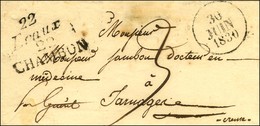 22
Evaux
CHAMBON
30
JUIN
1830
Monsieur
Monsieur jambon docteur en
médecine
à Jarnages
creuse
3